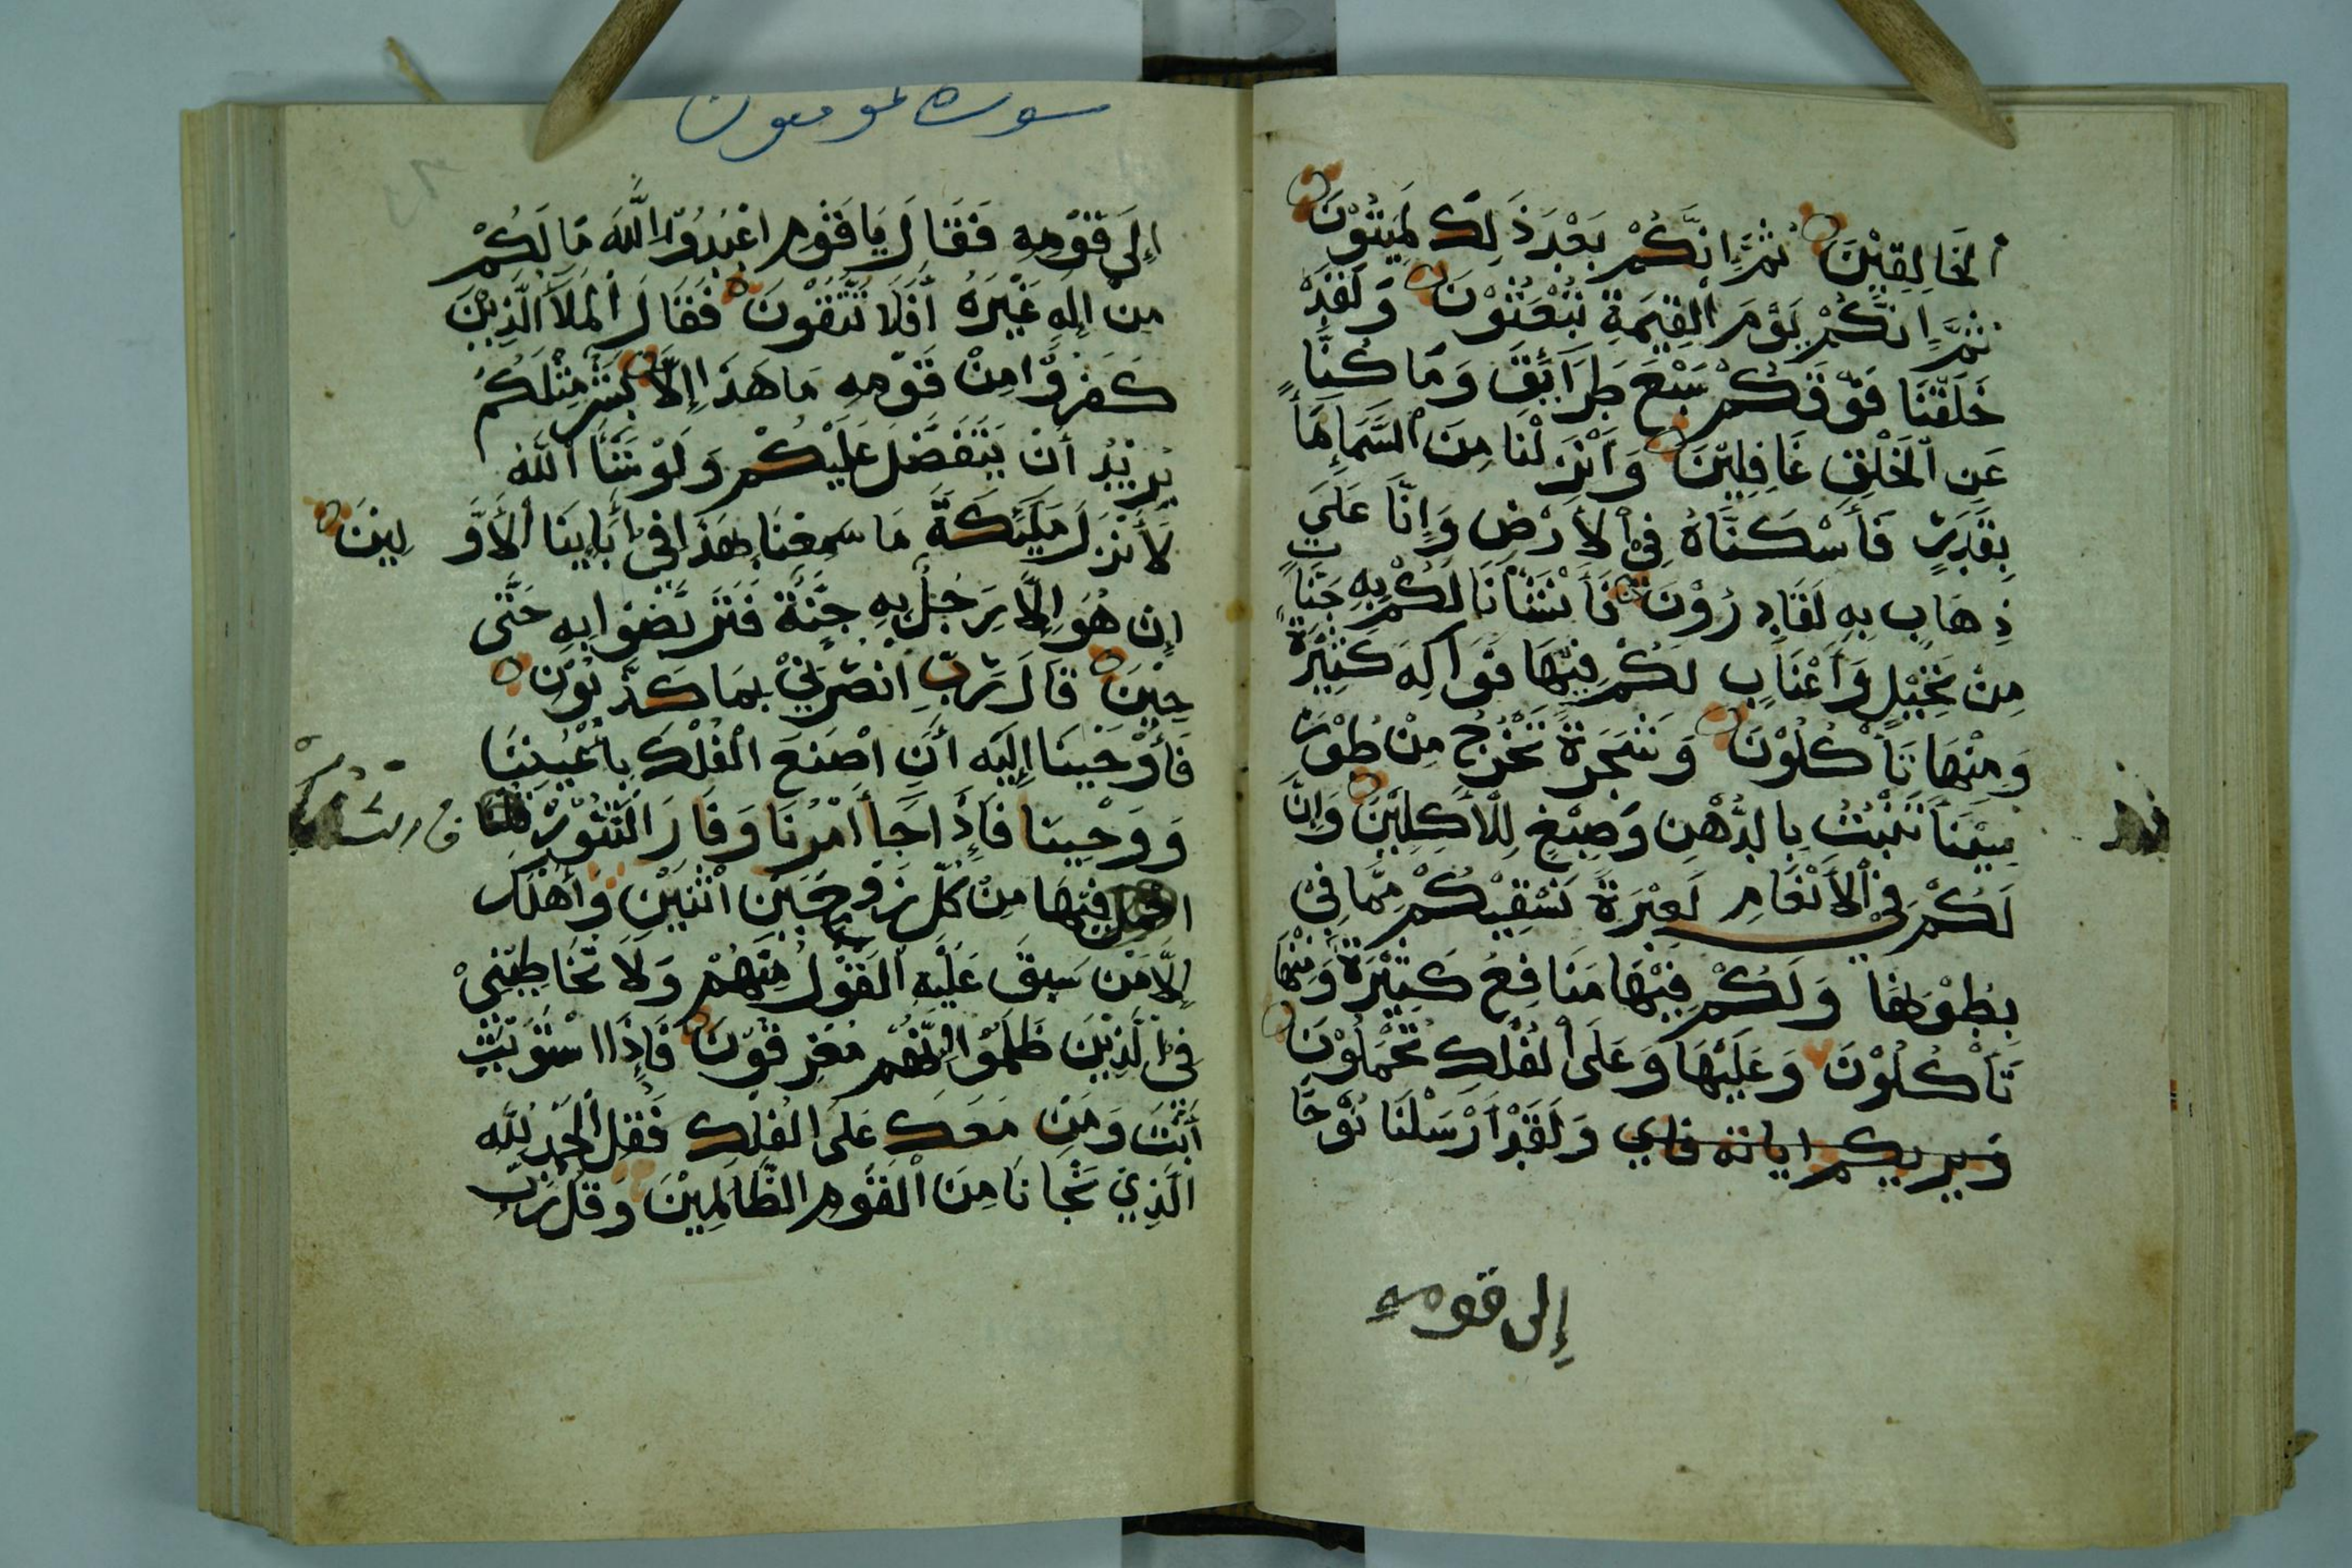 الْخَالِقِيْنَ ثُمَّ اِنَّكُمْ بَعْدَ ذَلِكَ لَمَيِّتُوْنَ
ثُمَّ اِنَّكُمْ يَوْمَ الْقِيٰمَةِ تُبْعَثُوْنَ وَلَقَدْ
خَلَقْنَا فَوْقَكُمْ سَبْعَ طَرَآئِقَ وَمَا كُنَّا
عَنِ الْخَلْقِ غَافِلِيْنَ وَاَنْزَلْنَا مِنَ السَّمَاءِ مَاً
بِقَدَرٍ فَأَسْكَنَّاهُ فِي الْأَرْضِ وَإِنَّا عَلَى
ذِهَابٍ بِهِ لَقَادِرُوْنَ فَأَنْشَأْنَا لَكُمْ بِهِ جَنَّاتٍ
مِنْ نَخِيْلٍ وَاَعْنَابٍ لَكُمْ فِيْهَا فَوَاكِهَ كَثِيْرَةٌ
وَمِنْهَا تَأْكُلُوْنَ وَشَجَرَةً تَخْرُجُ مِنْ طُوْرِ
سِيْنَآ تَنْبُتُ بِالدُّهْنِ وَصِبْغٍ لِلْآكِلِيْنَ وَاِنَّ
لَكُمْ فِي الْأَنْعَامِ لَعِبْرَةً نَسْقِيْكُمْ مِمَّا فِيْ
بُطُوْنِهَا وَلَكُمْ فِيْهَا مَنَافِعُ كَثِيْرَةٌ وَمِنْهَا
تَأْكُلُوْنَ وَعَلَيْهَا وَعَلَى الْفُلْكِ تُحْمَلُوْنَ
ويريكم اياته فاي وَلَقَدْ اَرْسَلْنَا نُوْحًا
إلى قومه
سوره المومنون
إِلَى قَوْمِهِ فَقَالَ يَا قَوْمِ اعْبُدُوا اللَّهَ مَا لَكُمْ
مِنْ اِلَهٍ غَيْرَهُ أَفَلَا تَتَّقُوْنَ فَقَالَ الْمَلَأُ الَّذِيْنَ
كَفَرُوْا مِنْ قَوْمِهِ مَا هَذَا اِلَّا بَشَرٌ مِثْلُكُمْ
يُرِيْدُ أَنْ يَتَفَضَّلَ عَلَيْكُمْ وَلَوْ شَآ اللَّهُ
لَأَنْزَلَ مَلَئِكَةً مَا سَمِعْنَا بِهَذَا فِيْ أَبَائِنَا الْأَوَّلِينَ
إِنْ هُوَ اِلَّا رَجُلٌ بِهِ جِنَّةٌ فَتَرَبَّصُوا بِهِ حَتَّى
حِيْنَ قَالَ رَبِّ انْصُرْنِيْ بِمَا كَذَّبُوْنِ
فَأَوْحَيْنَا اِلَيْهِ أَنِ اصْنَعِ الْفُلْكَ بِاَعْيُنِنَا
وَوَحْيِنَا فَإِذَا جَآ أَمْرُنَا وَفَارَ التَّنُّوْرُ
فِيْهَا مِنْ كُلٍّ زَوْجَيْنِ اثْنَيْنِ وَأَهْلَكَ
اِلَّا مَنْ سَبَقَ عَلَيْهِ الْقَوْلُ مِنْهُمْ وَلَا تُخَاطِبْنِيْ
فِي الَّذِيْنَ ظَلَمُوْا اِنَّهُمْ مُغْرَقُوْنَ فَإِذَا اسْتَوَيْتَ
أَنْتَ وَمَنْ مَعَكَ عَلَى الْفُلْكِ فَقُلِ الْحَمْدُ لِلَّهِ
الَّذِيْ نَجَّانَا مِنَ الْقَوْمِ الظَّالِمِيْنَ وَقُلْ رَبِّ